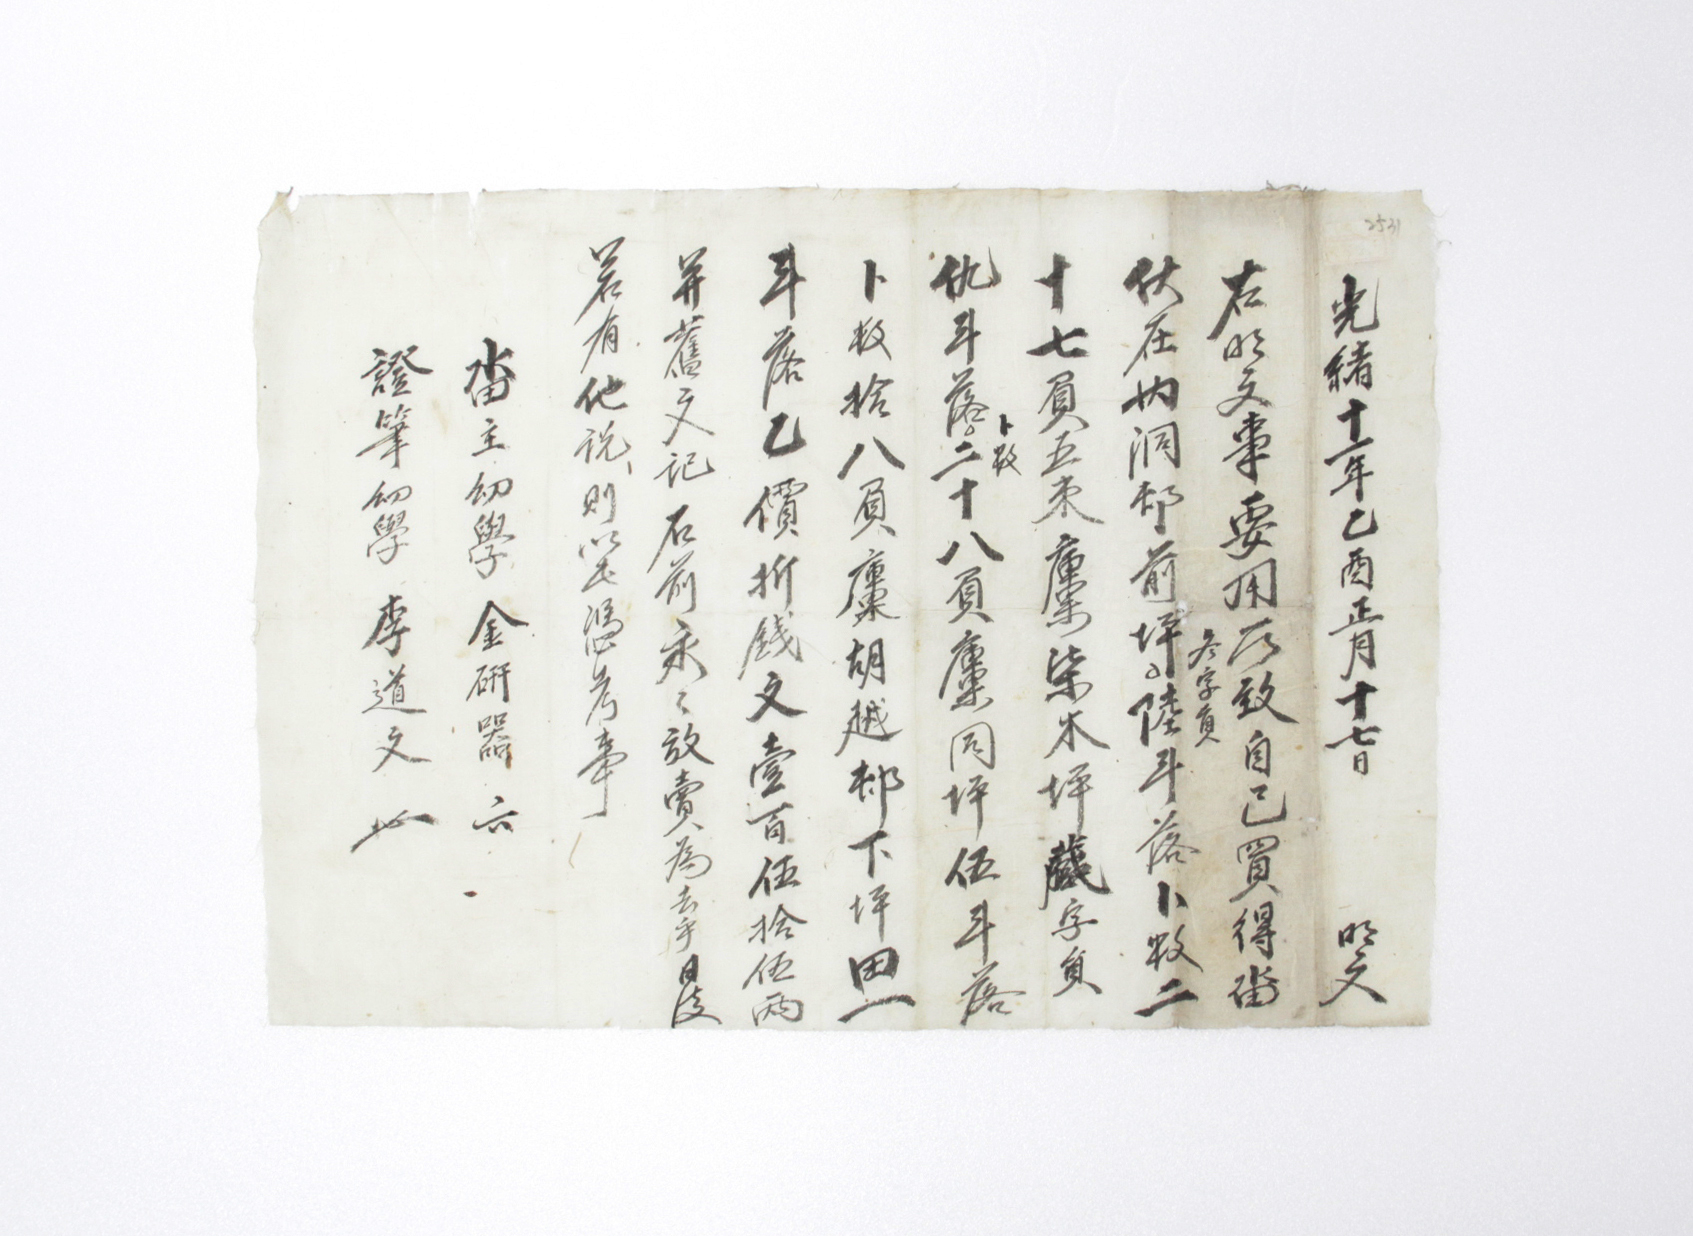 2531
光緒十一年乙酉正月十七日 明文
右明文事要用所致自己買得畓
伏在內洞邨前坪冬字員陸斗落卜數二
十七員五束廩柴木坪藏字員
仇斗落卜數二十八員廩同坪伍斗落
卜數拾八員廩胡越邨下坪田一
斗落乙價折錢文壹百伍拾伍兩
并舊文記右前永〻放賣為去乎日後
若有他說則以此憑考事
畓主幼學 金硏器
證筆幼學 李道文